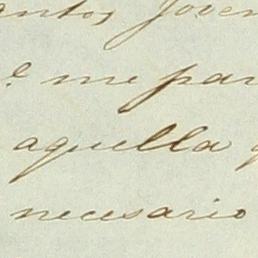 antos Joven
e me par
aquella q
necesario